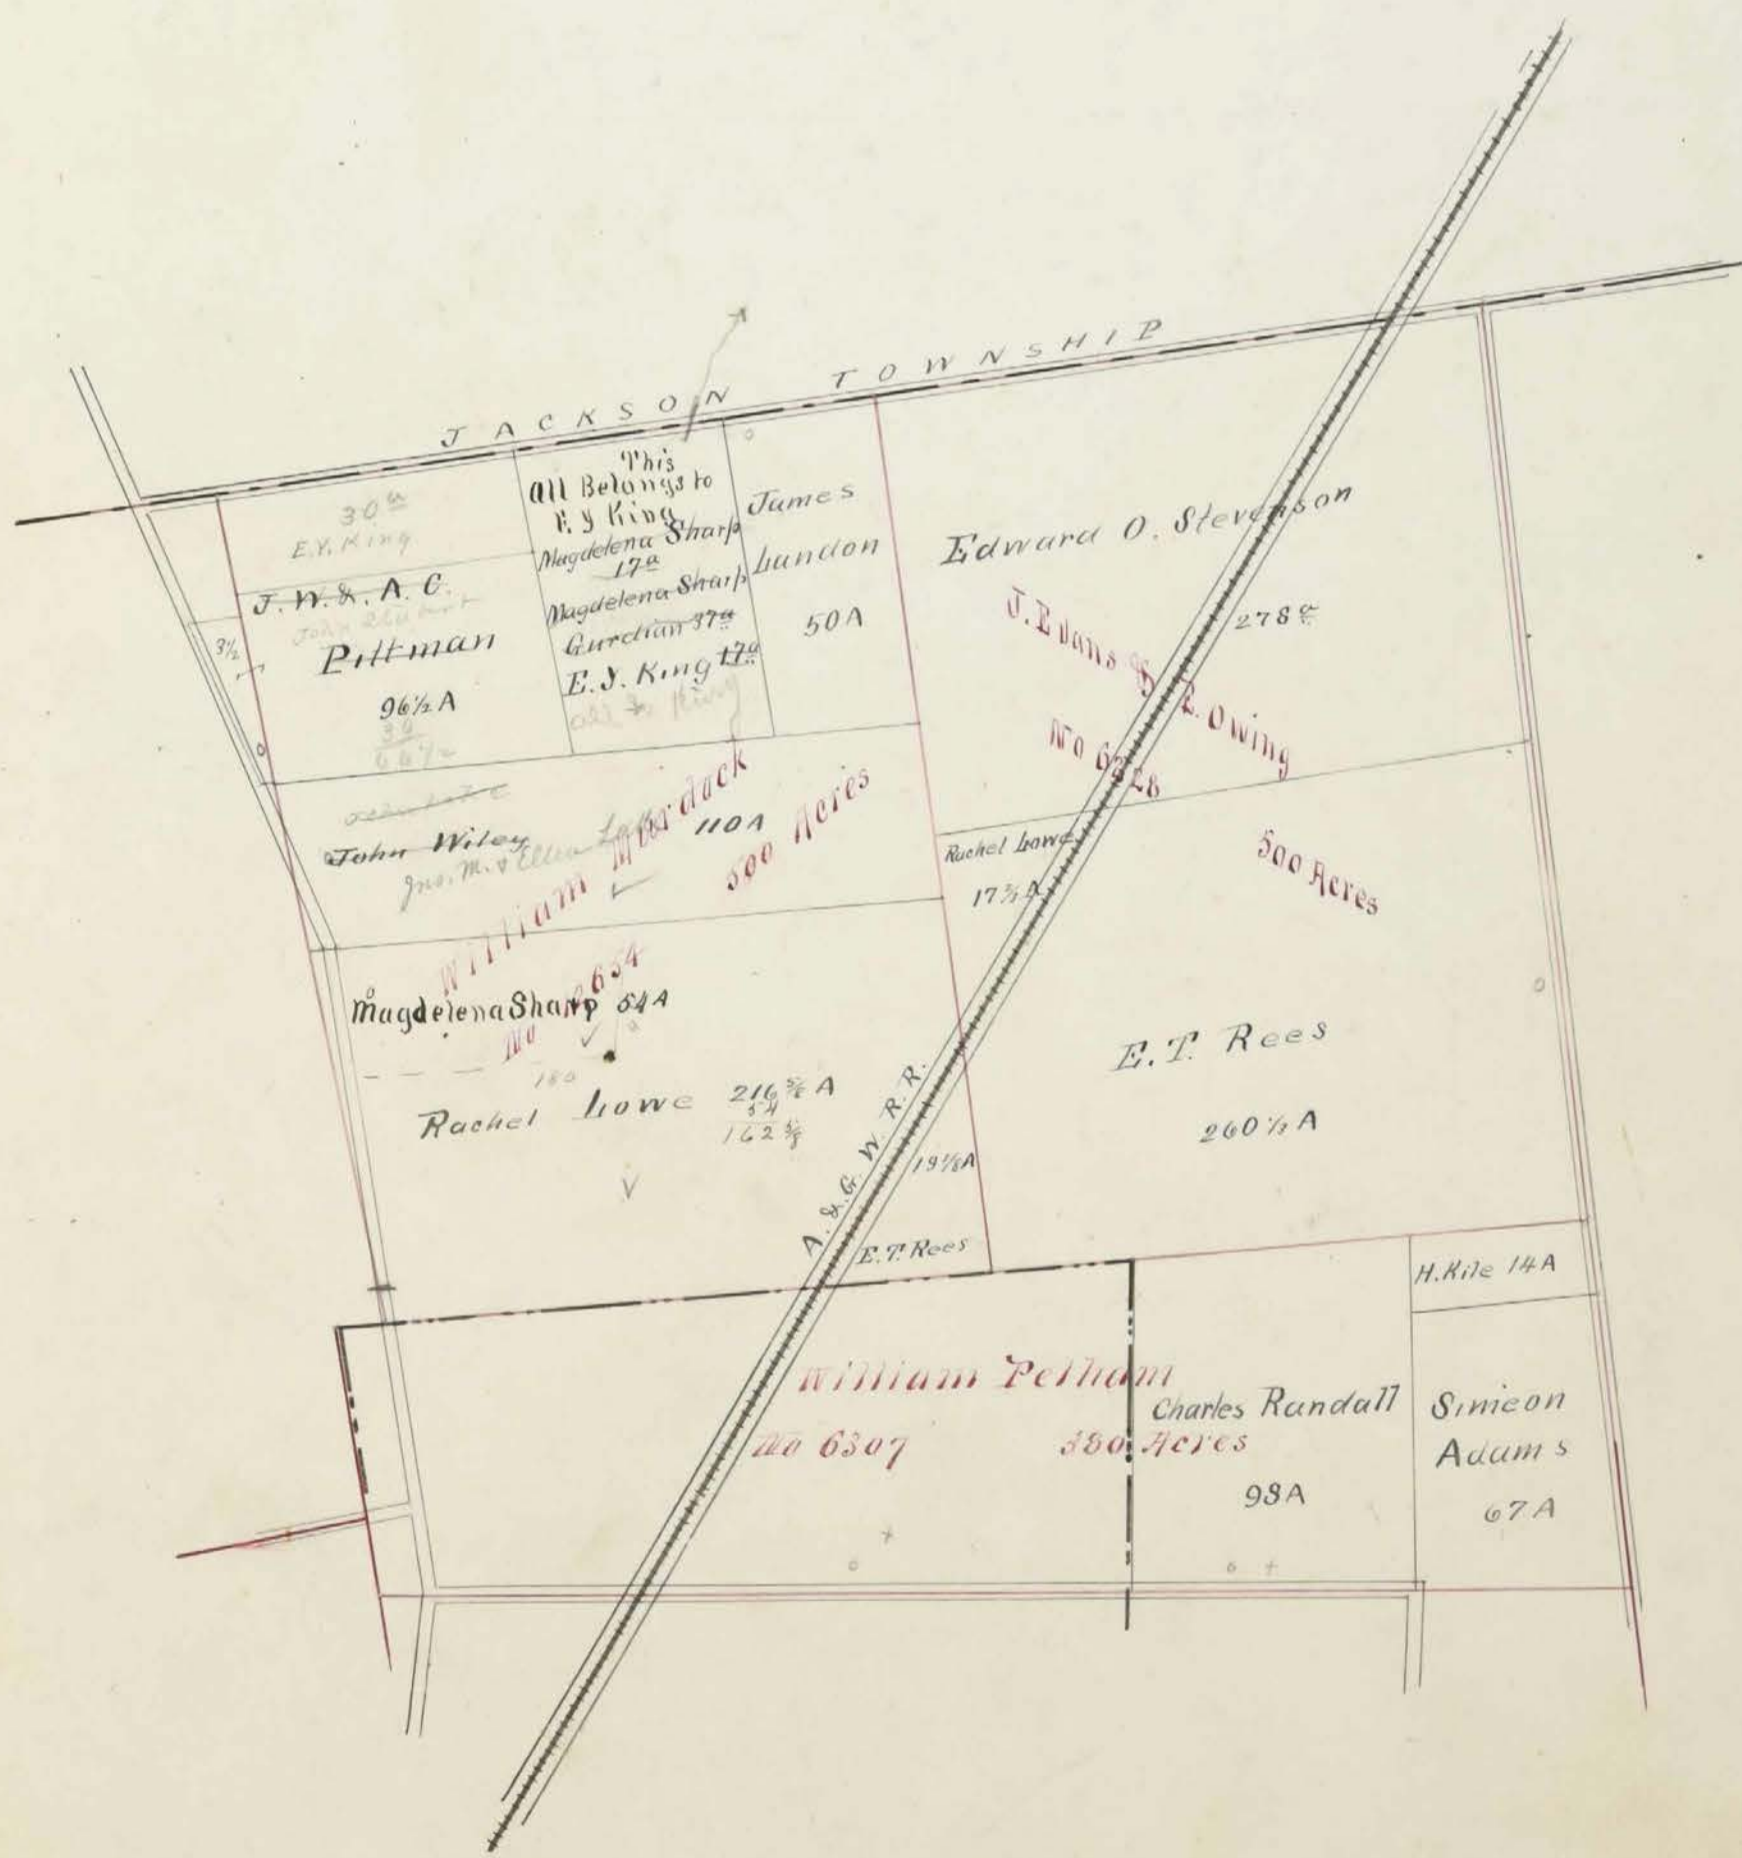 JACKSON TOWNSHIP
30a
E.Y. King
J. W. & A. C.
John
Pittman
96½ A
30
66½
3½
This
all Belongs to
E Y King
Magdelena Sharp
17a
Magdelena Sharp
Gurdian 37a
E. Y. King 17a
all to King
James
Landon
50 A
Edward O. Stevenson
278a
J. Evans & E. Owing
No 6328
500 Acres
John Wiley
Jno. M. & Ellen
110 A
William Murdock
500 Acres
No 12634
Rachel Lowe
17¾ A
Magdelena Sharp 54 A
180
Rachel Lowe 216⅝ A
54
162⅝
E. T. Rees
260½ A
A. & G. W. R. R.
19⅛ A
E. T. Rees
H. Kile 14 A
William Pelham
No 6307 380 Acres
Charles Randall
98 A
Simeon
Adams
67 A